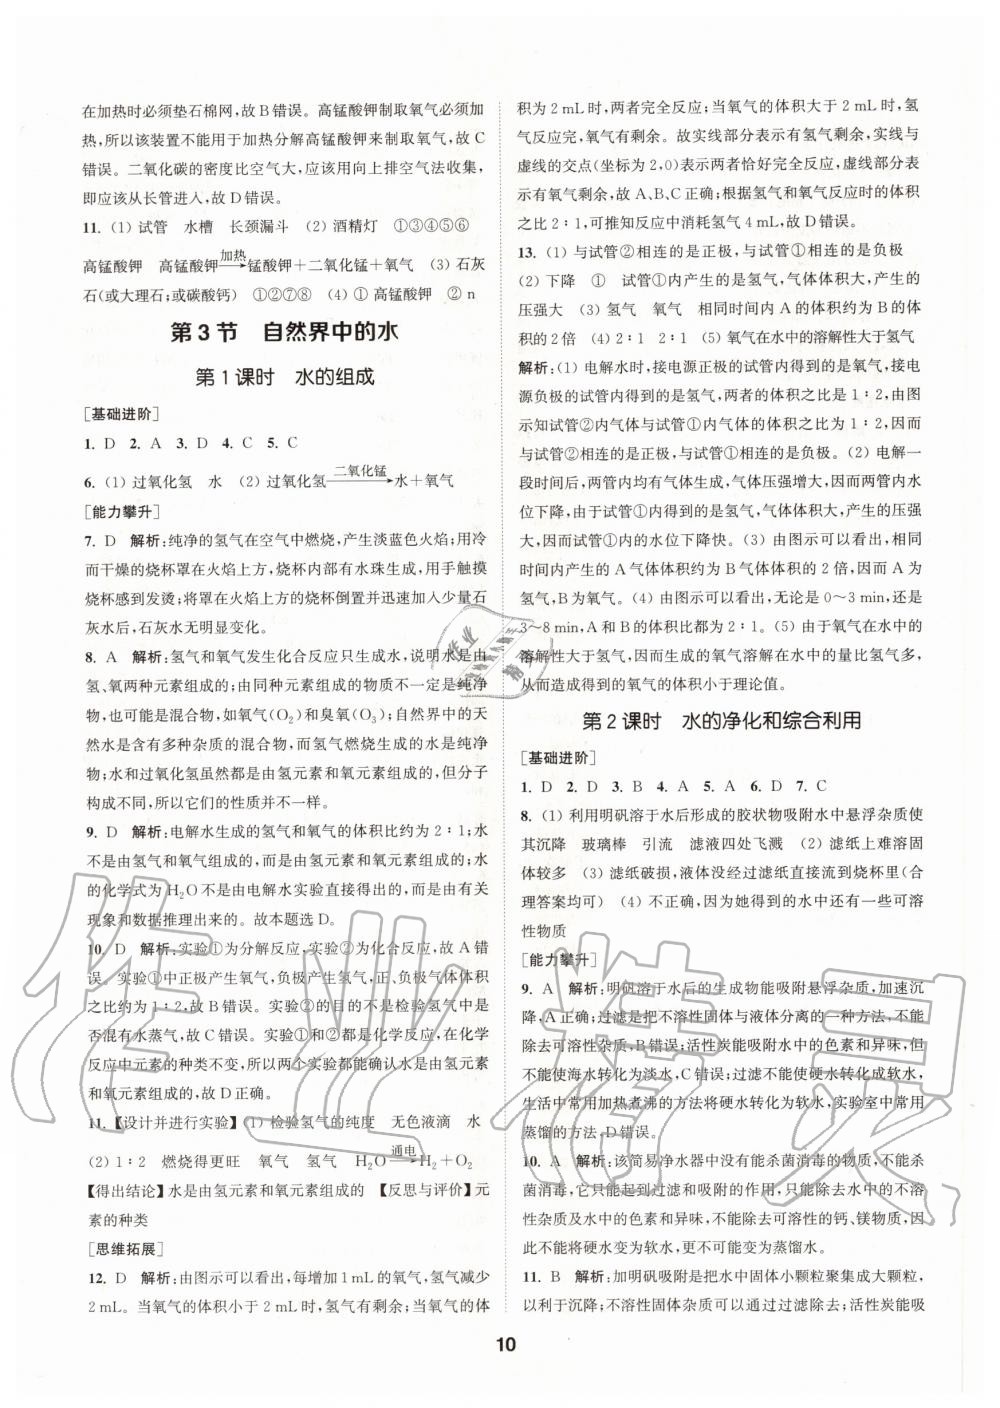 在加热时必须垫石棉网,故B错误。高锰酸钾制取氧气必须加
热,所以该装置不能用于加热分解高锰酸钾来制取氧气,故C
错误。二氧化碳的密度比空气大,应该用向上排空气法收集,
即应该从长管进入,故D错误。
11. (1) 试管 水槽 长颈漏斗 (2) 酒精灯 ①③④⑤⑥
高锰酸钾 高锰酸钾 加热→ 锰酸钾+二氧化锰+氧气 (3) 石灰
石(或大理石;或碳酸钙) ①②⑦⑧ (4) ① 高锰酸钾 ② n
第3节 自然界中的水
第1课时 水的组成
[基础进阶]
1. D 2. A 3. D 4. C 5. C
6. (1) 过氧化氢 水 (2) 过氧化氢 二氧化锰→ 水+氧气
[能力攀升]
7. D 解析:纯净的氢气在空气中燃烧,产生淡蓝色火焰;用冷
而干燥的烧杯罩在火焰上方,烧杯内部有水珠生成,用手触摸
烧杯感到发烫;将罩在火焰上方的烧杯倒置并迅速加入少量石
灰水后,石灰水无明显变化。
8. A 解析:氢气和氧气发生化合反应只生成水,说明水是由
氢、氧两种元素组成的;由同种元素组成的物质不一定是纯净
物,也可能是混合物,如氧气(O₂)和臭氧(O₃);自然界中的天
然水是含有多种杂质的混合物,而氢气燃烧生成的水是纯净
物;水和过氧化氢虽然都是由氢元素和氧元素组成的,但分子
构成不同,所以它们的性质并不一样。
9. D 解析:电解水生成的氢气和氧气的体积比约为2∶1;水
不是由氢气和氧气组成的,而是由氢元素和氧元素组成的;水
的化学式为H₂O不是由电解水实验直接得出的,而是由有关
现象和数据推理出来的。故本题选D。
10. D 解析:实验①为分解反应,实验②为化合反应,故A错
误。实验①中正极产生氧气,负极产生氢气,正、负极气体体积
之比约为1∶2,故B错误。实验②的目的不是检验氢气中是
否混有水蒸气,故C错误。实验①和②都是化学反应,在化学
反应中元素的种类不变,所以两个实验都能确认水是由氢元素
和氧元素组成的,故D正确。
11. 【设计并进行实验】(1) 检验氢气的纯度 无色液滴 水
(2) 1∶2 燃烧得更旺 氧气 氢气 H₂O 通电→ H₂+O₂
【得出结论】水是由氢元素和氧元素组成的 【反思与评价】元
素的种类
[思维拓展]
12. D 解析:由图示可以看出,每增加1 mL的氧气,氢气减少
2 mL。当氧气的体积小于2 mL时,氢气有剩余;当氧气的体
积为2 mL时,两者完全反应;当氧气的体积大于2 mL时,氢
气反应完,氧气有剩余。故实线部分表示有氢气剩余,实线与
虚线的交点(坐标为2,0)表示两者恰好完全反应,虚线部分表
示有氧气剩余,故A、B、C正确;根据氢气和氧气反应时的体积
之比2∶1,可推知反应中消耗氢气4 mL,故D错误。
13. (1) 与试管②相连的是正极,与试管①相连的是负极
(2) 下降 ① 试管①内产生的是氢气,气体体积大,产生的
压强大 (3) 氢气 氧气 相同时间内A的体积约为B的体
积的2倍 (4) 2∶1 2∶1 (5) 氧气在水中的溶解性大于氢气
解析:(1) 电解水时,接电源正极的试管内得到的是氧气,接电
源负极的试管内得到的是氢气,两者的体积之比是1∶2,由图
示知试管②内气体与试管①内气体的体积之比约为1∶2,因
而与试管②相连的是正极,与试管①相连的是负极。(2) 电解一
段时间后,两管内均有气体生成,气体压强增大,因而两管内水
位下降,由于试管①内得到的是氢气,气体体积大,产生的压强
大,因而试管①内的水位下降快。(3) 由图示可以看出,相同
时间内产生的A气体体积约为B气体体积的2倍,因而A为
氢气,B为氧气。(4) 由图示可以看出,无论是0～3 min,还是
3～8 min,A和B的体积比都为2∶1。(5) 由于氧气在水中的
溶解性大于氢气,因而生成的氧气溶解在水中的量比氢气多,
从而造成得到的氧气的体积小于理论值。
第2课时 水的净化和综合利用
[基础进阶]
1. D 2. D 3. B 4. A 5. A 6. D 7. C
8. (1) 利用明矾溶于水后形成的胶状物吸附水中悬浮杂质使
其沉降 玻璃棒 引流 滤液四处飞溅 (2) 滤纸上难溶固
体较多 (3) 滤纸破损,液体没经过滤纸直接流到烧杯里(合
理答案均可) (4) 不正确,因为她得到的水中还有一些可溶
性物质
[能力攀升]
9. A 解析:明矾溶于水后的生成物能吸附悬浮杂质,加速沉
降,A正确;过滤是把不溶性固体与液体分离的一种方法,不能
除去可溶性杂质,B错误;活性炭能吸附水中的色素和异味,但
不能使海水转化为淡水,C错误;过滤不能使硬水转化成软水,
生活中常用加热煮沸的方法将硬水转化为软水,实验室中常用
蒸馏的方法,D错误。
10. A 解析:该简易净水器中没有能杀菌消毒的物质,不能杀
菌消毒,它只能起到过滤和吸附的作用,只能除去水中的不溶
性杂质及水中的色素和异味,不能除去可溶性的钙、镁物质,因
此不能将硬水变为软水,更不能变为蒸馏水。
11. B 解析:加明矾吸附是把水中固体小颗粒聚集成大颗粒,
以利于沉降;不溶性固体杂质可以通过过滤除去;活性炭能吸
10
作业精灵